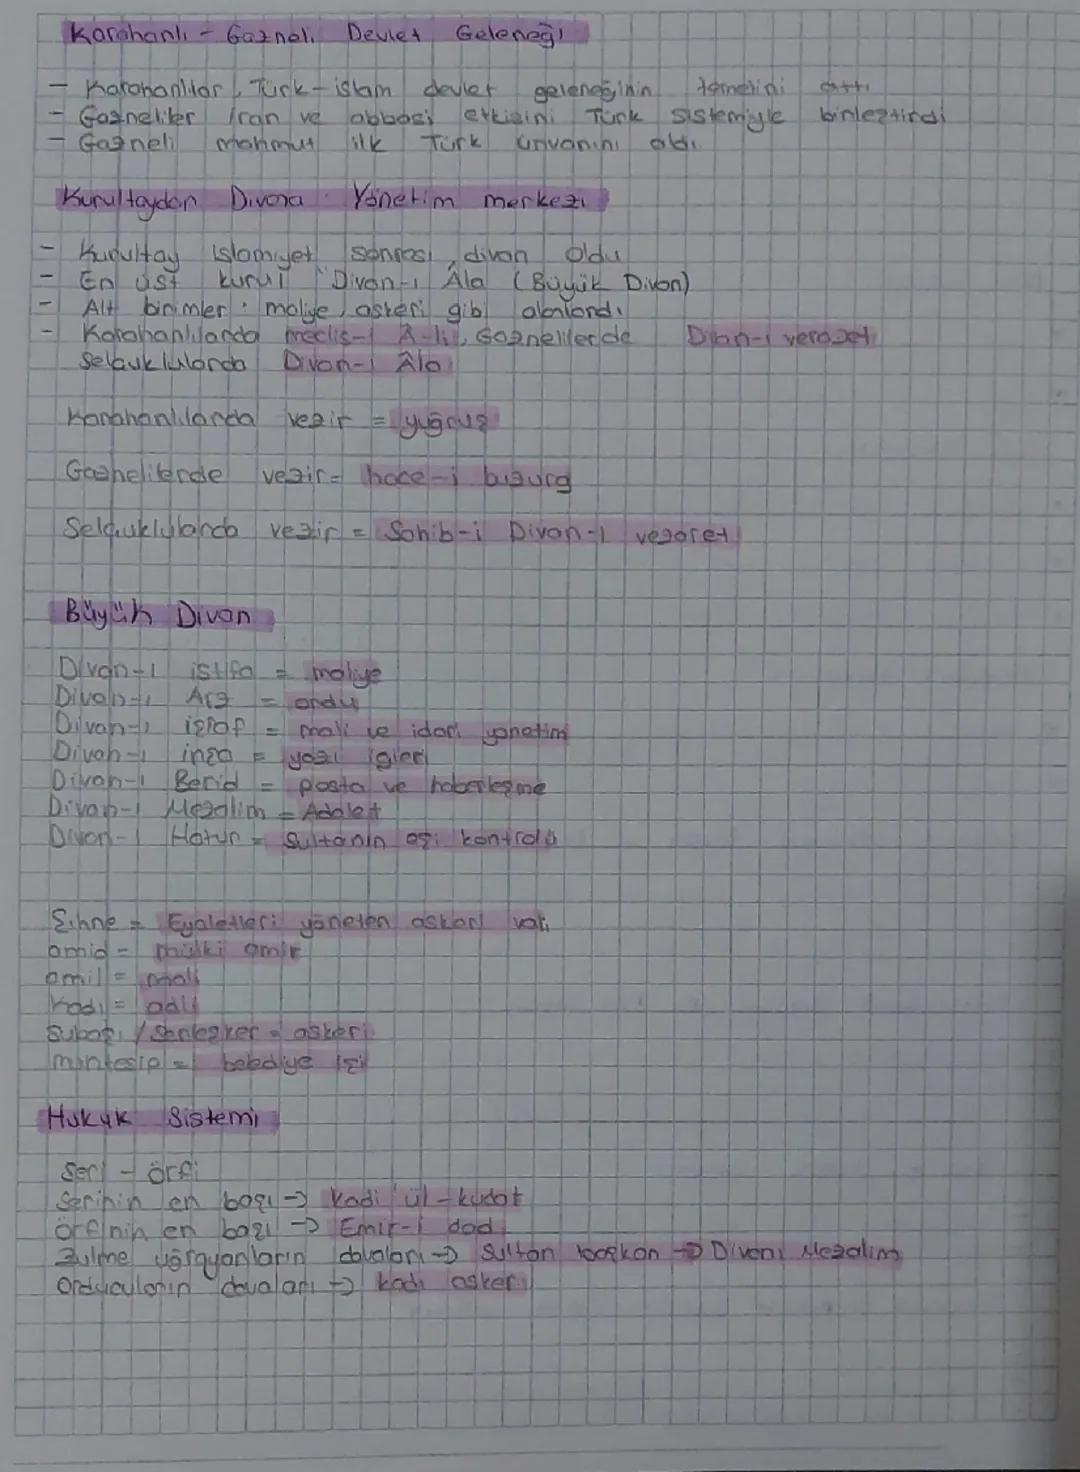 Karahanlı - Gazneli Devlet Geleneği
- Karahanlılar, Türk-islam devlet geleneğinin temelini attı
- Gazneliler iran ve abbasi etkisini Türk sistemiyle birleştirdi
- Gazneli mahmut ilk Türk ünvanını aldı
Kurultaydan Divana Yönetim merkezi
- Kurultay islamiyet sonrası, divan oldu
- En üst kurul Divan-ı Âla (Büyük Divan)
- Alt birimler: maliye, askeri gibi alanlandı
- Karahanlılarda meclis-i Â-li, Gaznelilerde Divan-ı vezaret
Selçuklularda Divan-ı Âla
Karahanlılarda vezir = yuğruş
Gaznelilerde vezir = hace-i buzurg
Selçuklularda vezir = Sahib-i Divan-ı vezaret
Büyük Divan
Divan-ı istifa = maliye
Divan-ı Arz = ordu
Divan-ı işraf = mali ve idari yönetim
Divan-ı inşa = yazı işleri
Divan-ı Berid = posta ve haberleşme
Divan-ı Mezalim = Adalet
Divan-ı Hatun = Sultanın eşi kontrolü
Şıhne = Eyaletleri yöneten askeri vali
amid = mülki amir
amil = mali
Kadı = adli
Subaşı / Serleşker = askeri
mühtesip = belediye işi
Hukuk Sistemi
Şeri - örfi
Şerinin en başı → Kadi'ül-kudat
örfinin en başı → Emir-i dad
Zulme uğrayanların davaları → Sultan başkan → Divanı Mezalim
Orducuların davaları → kadı asker